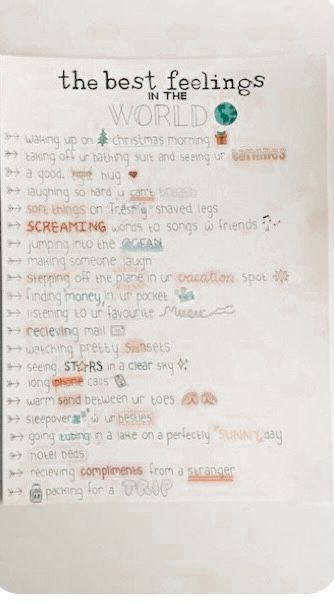 the best feelings
IN THE
WORLD
waking up on christmas morning
taking off ur bathing suit and seeing ur tanlines
a good, tight hug
laughing so hard u can't breath
soft things on "freshly" shaved legs
SCREAMING words to songs w friends
jumping into the OCEAN
making someone laugh
stepping off the plane in ur vacation spot
finding money in ur pocket
listening to ur favourite Music
recieving mail
watching pretty sunsets
seeing STARS in a clear sky
long iphone calls
warm sand between ur toes
sleepover w ur besties
going tubing in a lake on a perfectly "SUNNY" day
hotel beds
recieving compliments from a stranger
packing for a TRIP